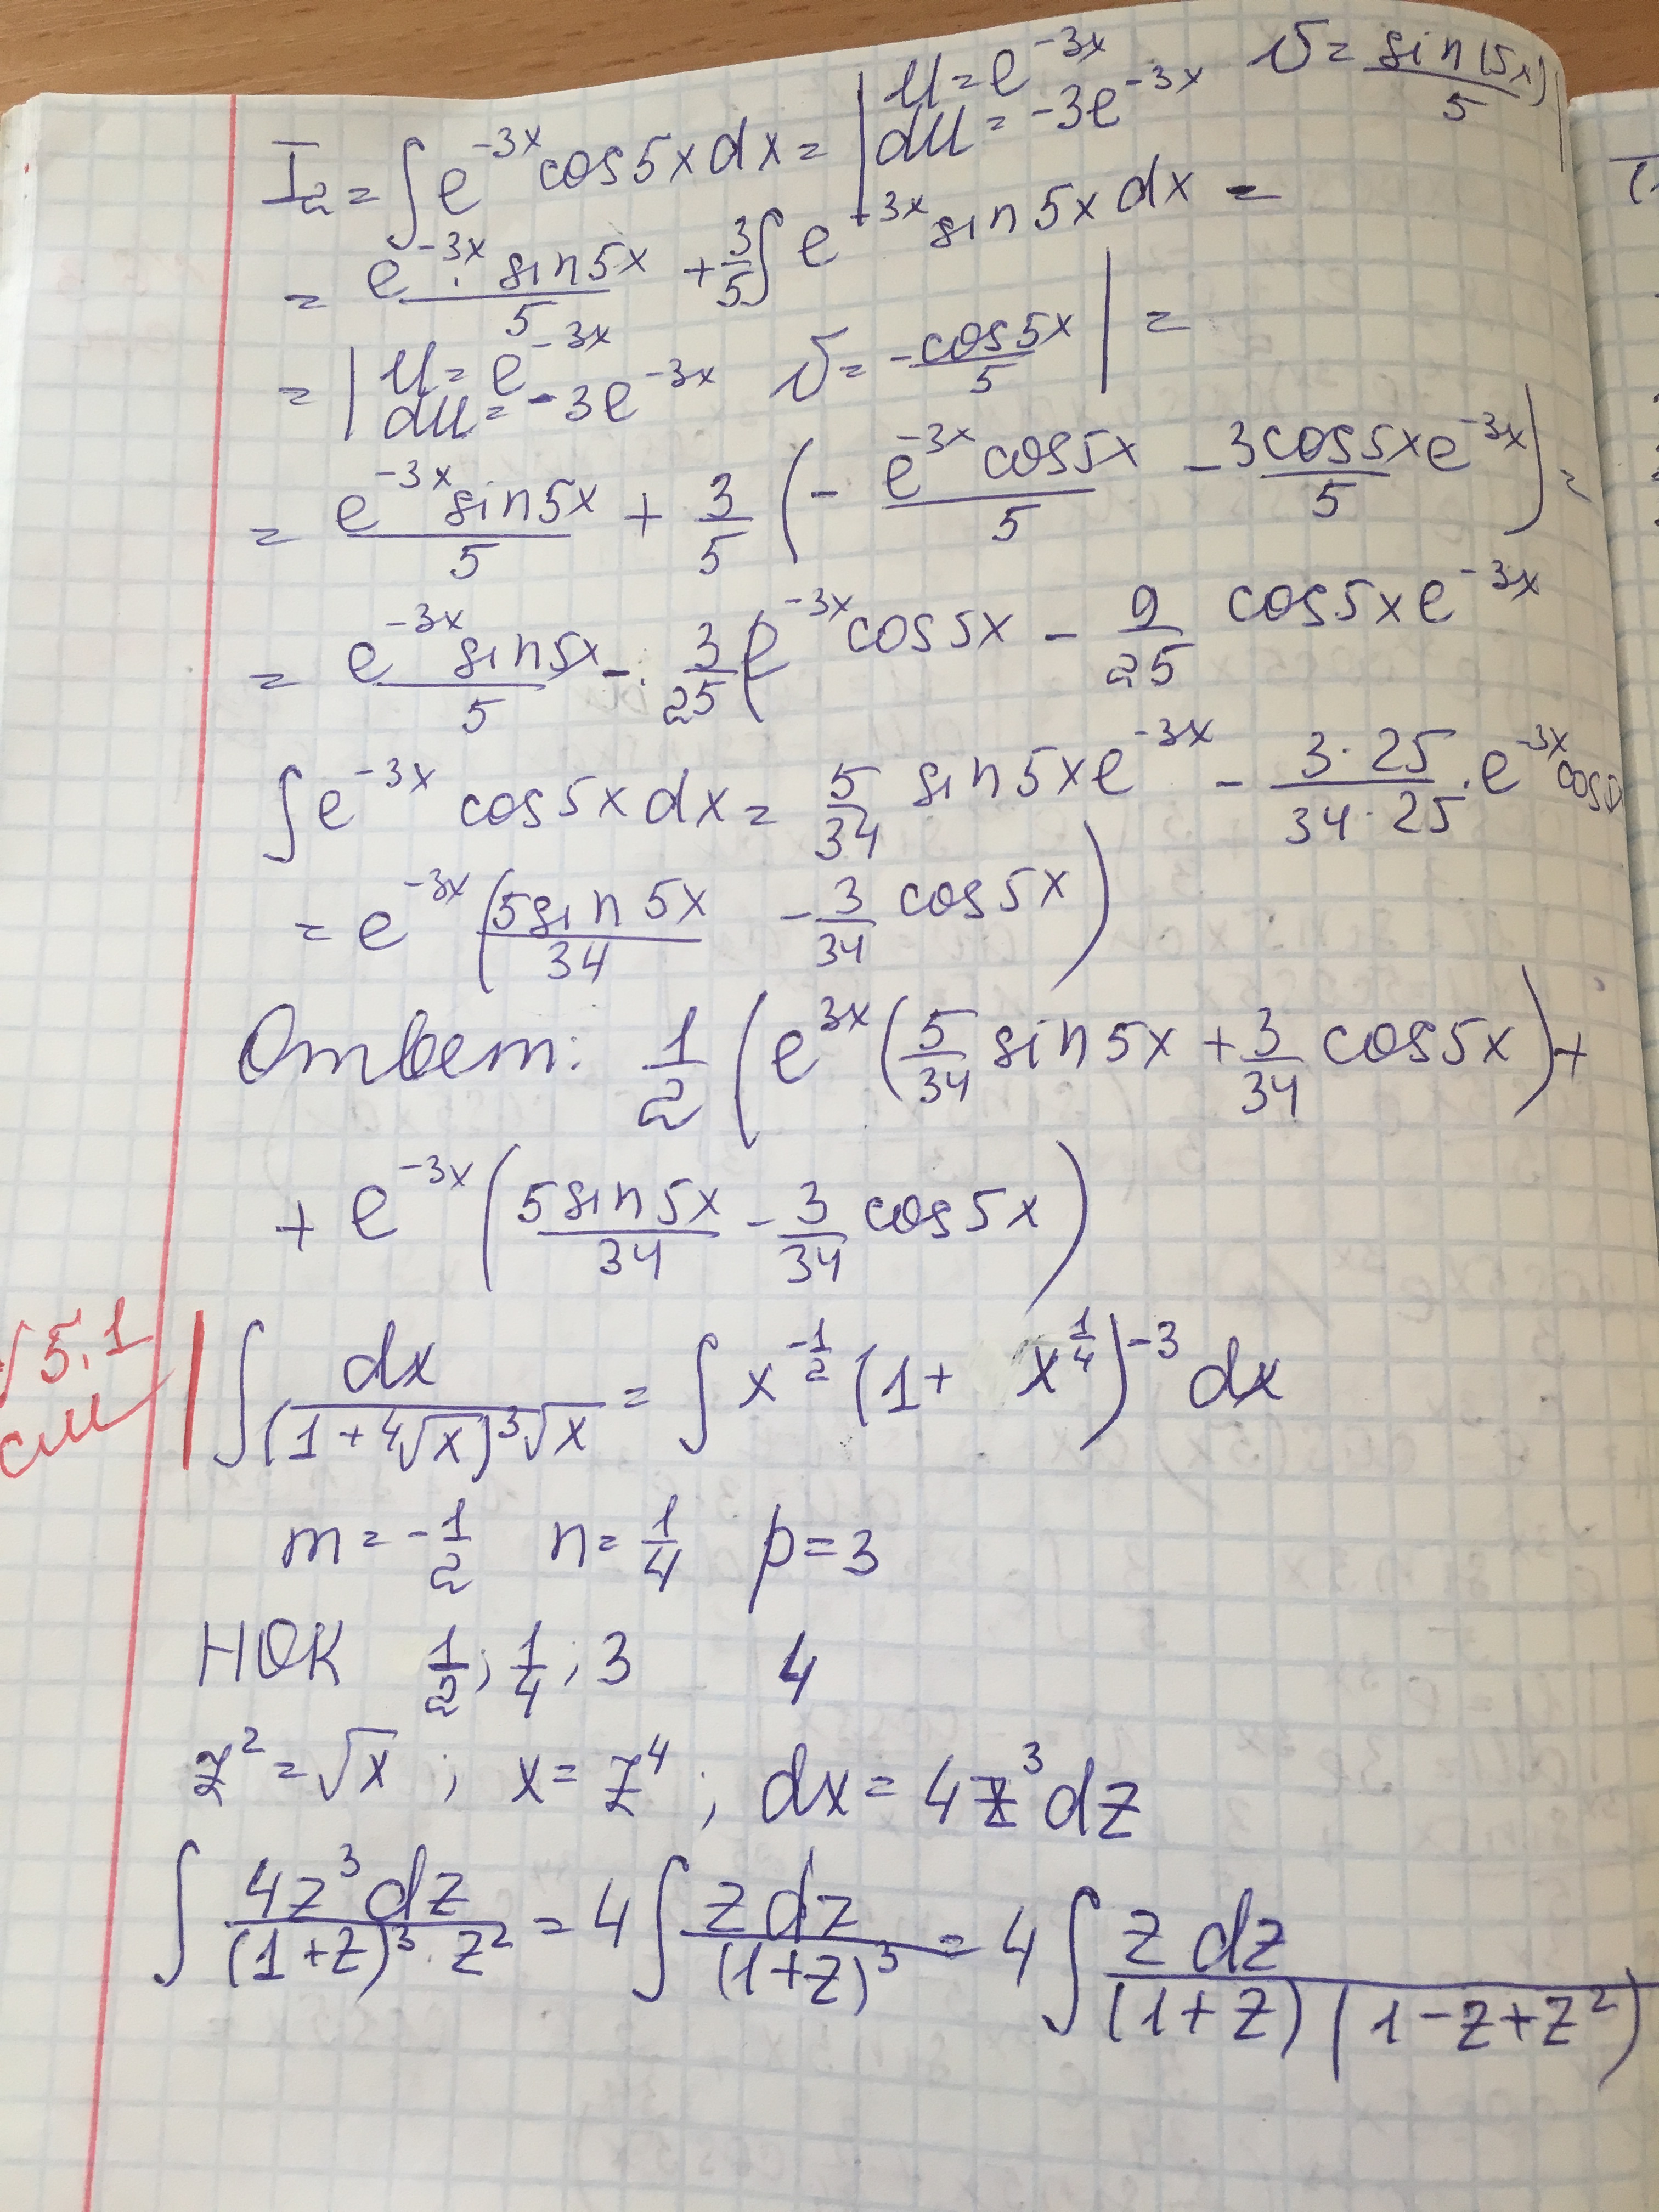 I₂ = ∫ e^{-3x} cos5x dx = | u = e^{-3x} v = sin(5x)/5
du = -3e^{-3x} |
= e^{-3x} · sin5x / 5 + 3/5 ∫ e^{-3x} sin5x dx =
= | u = e^{-3x} v = -cos5x/5 | =
du = -3e^{-3x}
= e^{-3x} sin5x / 5 + 3/5 ( - e^{-3x} cos5x / 5 - 3cos5x e^{-3x} / 5 ) =
= e^{-3x} sin5x / 5 - 3/25 e^{-3x} cos5x - 9/25 cos5x e^{-3x}
∫ e^{-3x} cos5x dx = 5/34 sin5x e^{-3x} - 3·25 / 34·25 · e^{-3x} cos
= e^{-3x} ( 5sin5x/34 - 3/34 cos5x )
Ответ: 1/2 ( e^{3x} ( 5/34 sin5x + 3/34 cos5x ) +
+ e^{-3x} ( 5sin5x/34 - 3/34 cos5x )
√5.1
сам
∫ dx / (1+⁴√x)³√x = ∫ x^{-1/2} (1 + x^{1/4})^{-3} dx
m = -1/2 n = 1/4 p = 3
НОК 1/2 ; 1/4 ; 3 4
z² = √x ; x = z⁴ ; dx = 4z³dz
∫ 4z³dz / (1+z)³ · z² = 4 ∫ zdz / (1+z)³ = 4 ∫ z dz / (1+z)(1-z+z²)